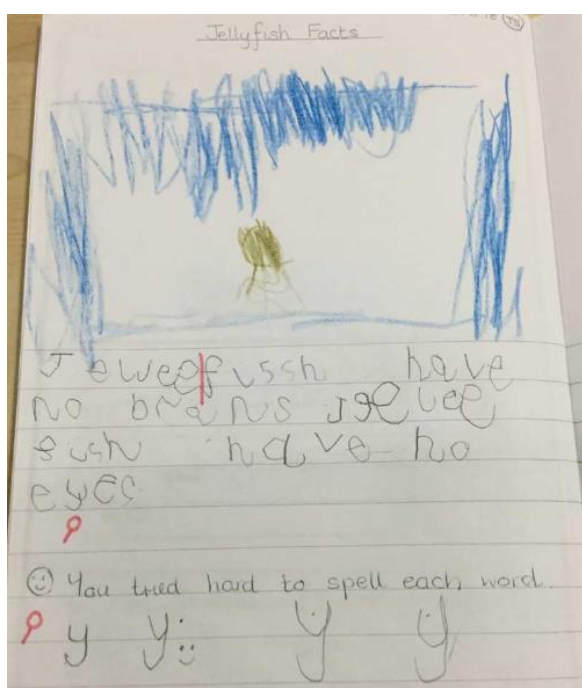 Jellyfish Facts
Jeweefussh have
no brans Jgevee
fush have no
eyes
You tried hard to spell each word.
y y y y